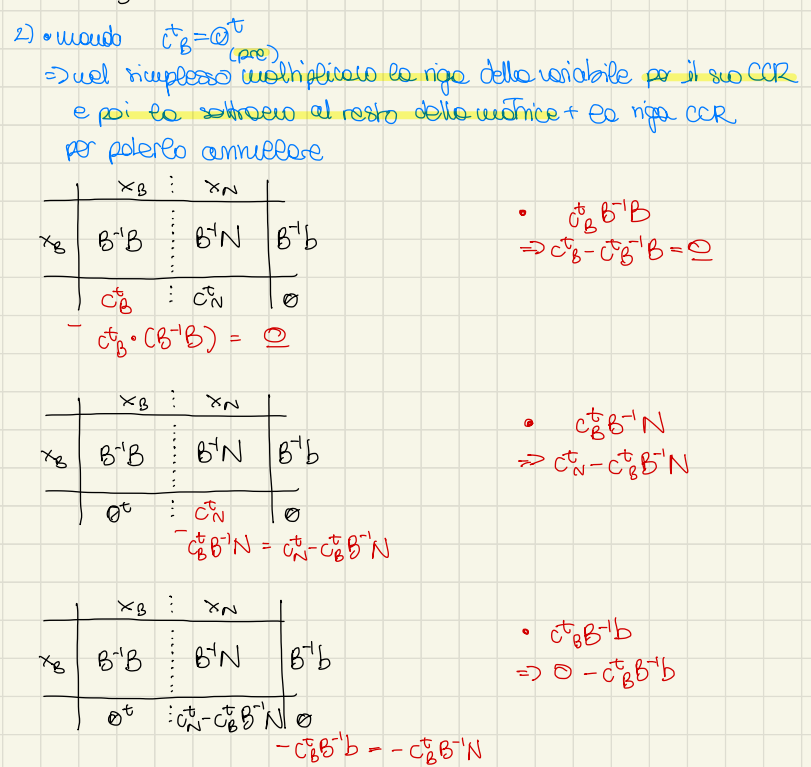 2) • mando c^t_B = 0^t
(pre)
⇒ nel simplesso moltiplicavo la riga della variabile per il suo CCR
e poi la sottraevo al resto della matrice + la riga CCR
per poterlo annullare
x_B x_N
x_B B⁻¹B B⁻¹N B⁻¹b
c^t_B c^t_N 0
- c^t_B • (B⁻¹B) = 0
• c^t_B B⁻¹B
⇒ c^t_B - c^t_B B⁻¹B = 0
x_B x_N
x_B B⁻¹B B⁻¹N B⁻¹b
0^t c^t_N 0
- c^t_B B⁻¹N = c^t_N - c^t_B B⁻¹N
• c^t_B B⁻¹N
⇒ c^t_N - c^t_B B⁻¹N
x_B x_N
x_B B⁻¹B B⁻¹N B⁻¹b
0^t c^t_N - c^t_B B⁻¹N 0
- c^t_B B⁻¹b = - c^t_B B⁻¹N
• c^t_B B⁻¹b
⇒ 0 - c^t_B B⁻¹b